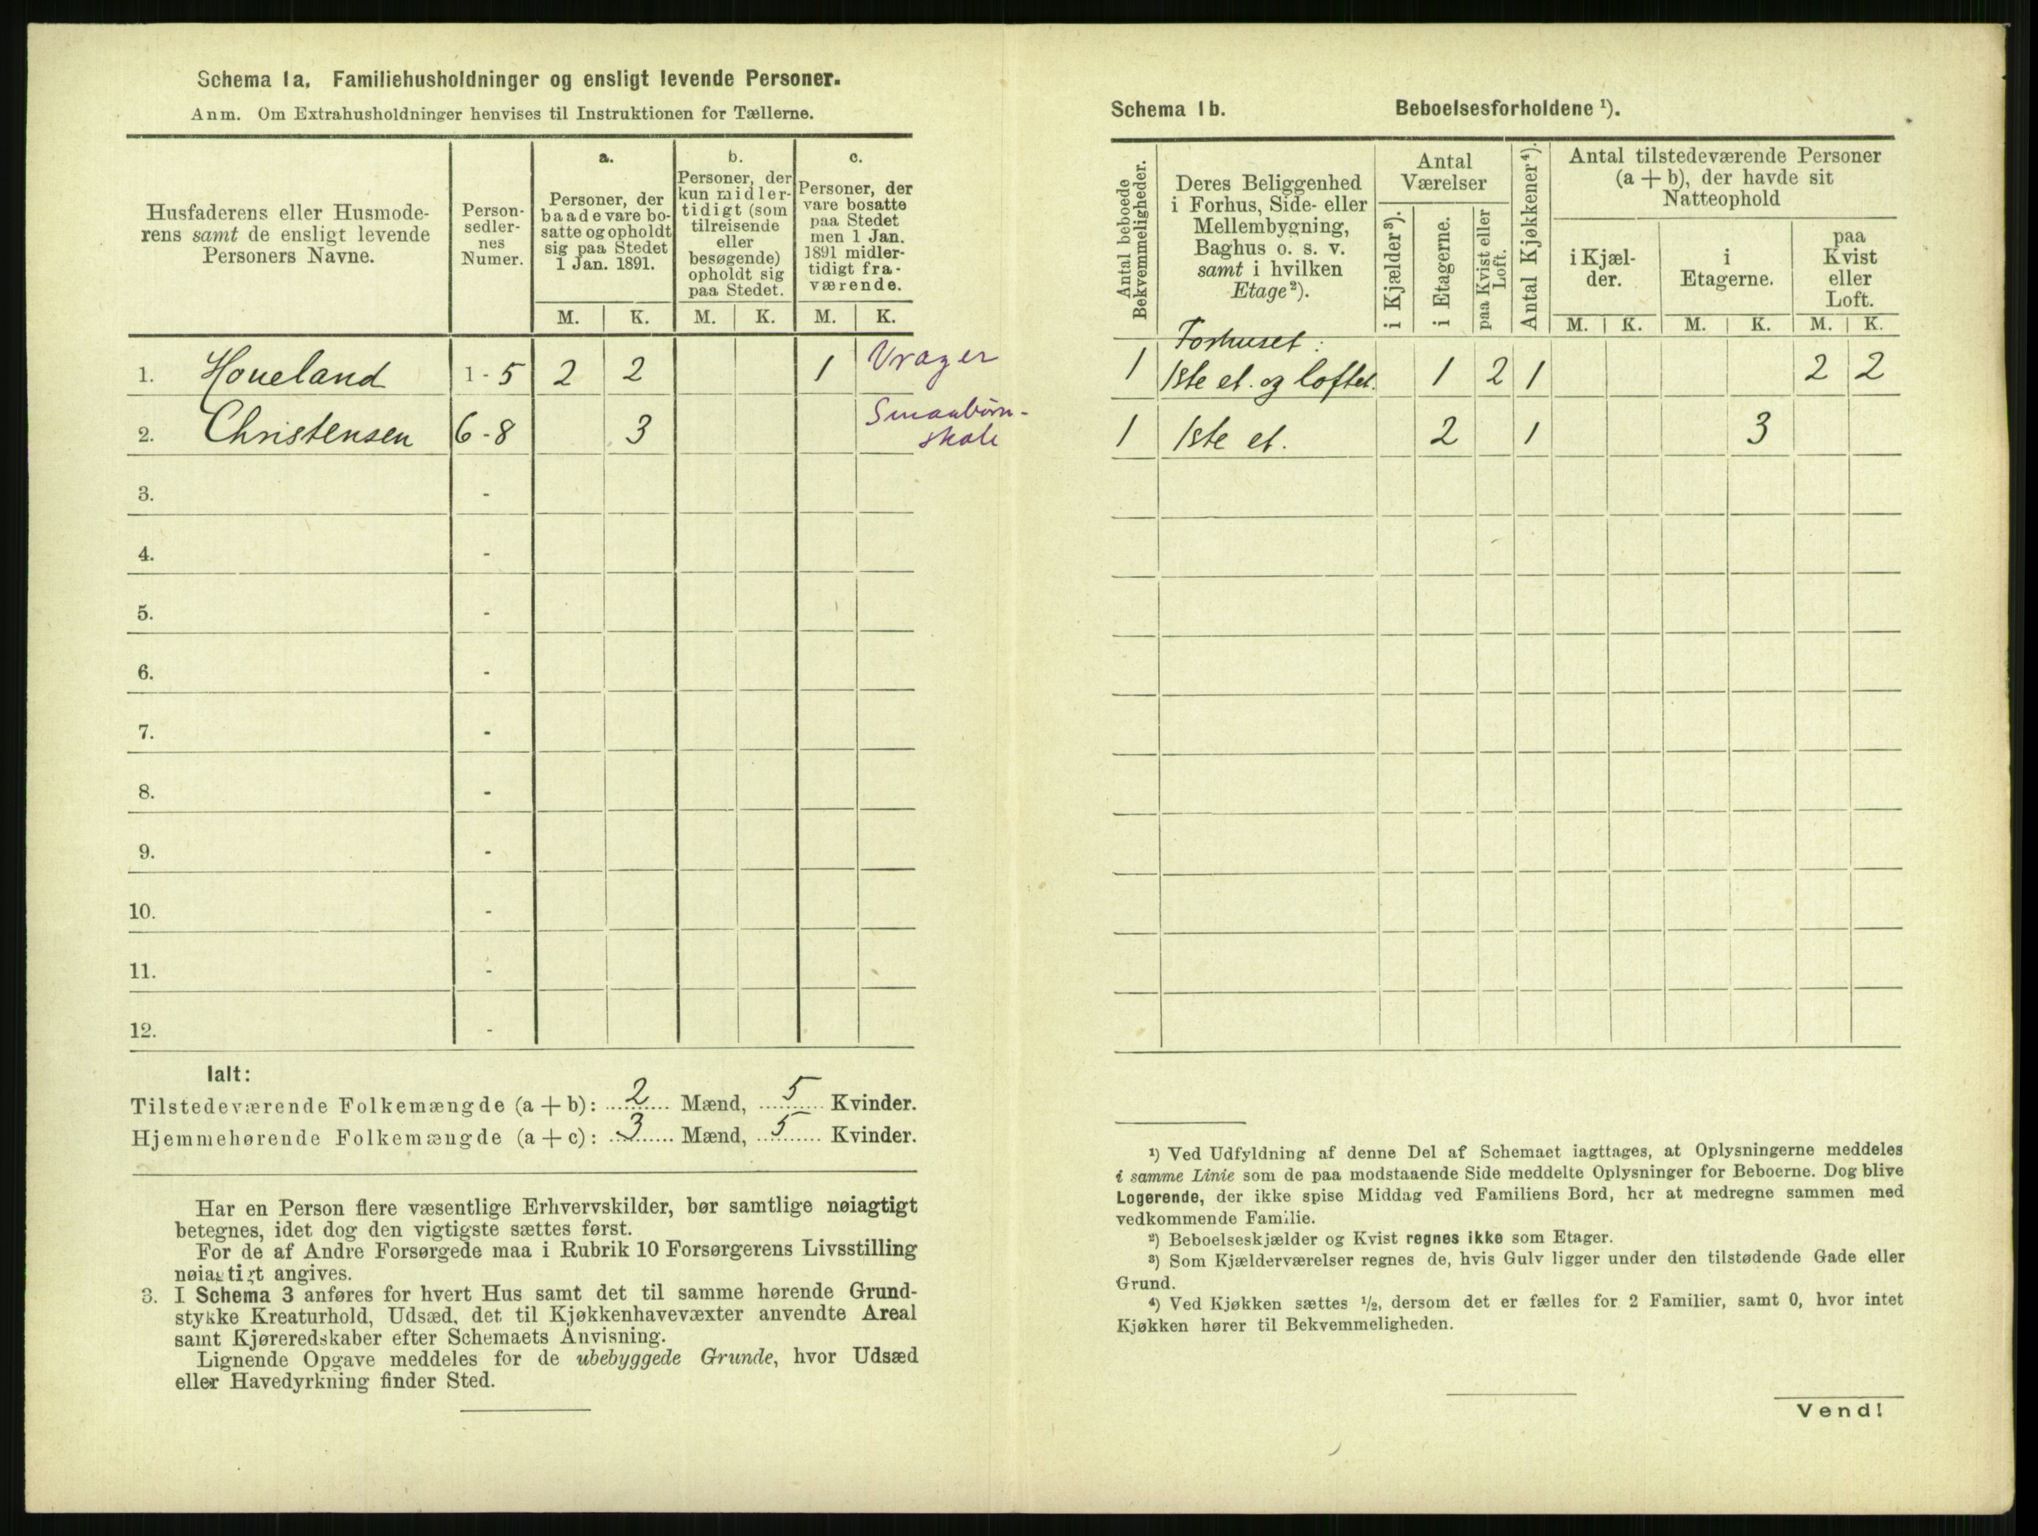 Schema 1a. Familiehusholdninger og ensligt levende Personer.
Anm. Om Extrahusholdninger henvises til Instruktionen for Tællerne.
Husfaderens eller Husmode-
rens samt de ensligt levende
Personers Navne.
Person-
sedler-
nes
Numer.
a.
Personer, der
baade vare bo-
satte og opholdt
sig paa Stedet
1 Jan. 1891.
b.
Personer, der
kun midler-
tidigt (som
tilreisende
eller
besøgende)
opholdt sig
paa Stedet.
c.
Personer, der
vare bosatte
paa Stedet
men 1 Jan.
1891 midler-
tidigt fra-
værende.
M. K. M. K. M. K.
1. Houeland 1 - 5 2 2 1 Vrager
2. Christensen 6 - 8 3 Smaabørn-
skole
3. -
4. -
5. -
6. -
7. -
8. -
9. -
10. -
11. -
12. -
Ialt:
Tilstedeværende Folkemængde (a + b): 2 Mænd, 5 Kvinder.
Hjemmehørende Folkemængde (a + c): 3 Mænd, 5 Kvinder.
Har en Person flere væsentlige Erhvervskilder, bør samtlige nøiagtigt
betegnes, idet dog den vigtigste sættes først.
For de af Andre Forsørgede maa i Rubrik 10 Forsørgerens Livsstilling
nøiagtigt angives.
3. I Schema 3 anføres for hvert Hus samt det til samme hørende Grund-
stykke Kreaturhold, Udsæd, det til Kjøkkenhavevæxter anvendte Areal
samt Kjøreredskaber efter Schemaets Anvisning.
Lignende Opgave meddeles for de ubebyggede Grunde, hvor Udsæd
eller Havedyrkning finder Sted.
Schema 1b. Beboelsesforholdene ¹).
Antal beboede
Bekvemmeligheder.
Deres Beliggenhed
i Forhus, Side- eller
Mellembygning,
Baghus o. s. v.
samt i hvilken
Etage²).
Antal
Værelser
i Kjælder³).
i Etagerne.
paa Kvist eller
Loft.
Antal Kjøkkener⁴).
Antal tilstedeværende Personer
(a + b), der havde sit
Natteophold
i Kjæl-
der.
i
Etagerne.
paa
Kvist
eller
Loft.
M. K. M. K. M. K.
Forhuset:
1 1ste et. og loftet. 1 2 1 2 2
1 1ste et. 2 1 3
¹) Ved Udfyldning af denne Del af Schemaet iagttages, at Oplysningerne meddeles
i samme Linie som de paa modstaaende Side meddelte Oplysninger for Beboerne. Dog blive
Logerende, der ikke spise Middag ved Familiens Bord, her at medregne sammen med
vedkommende Familie.
²) Beboelseskjælder og Kvist regnes ikke som Etager.
³) Som Kjælderværelser regnes de, hvis Gulv ligger under den tilstødende Gade eller
Grund.
⁴) Ved Kjøkken sættes ½, dersom det er fælles for 2 Familier, samt 0, hvor intet
Kjøkken hører til Bekvemmeligheden.
Vend!